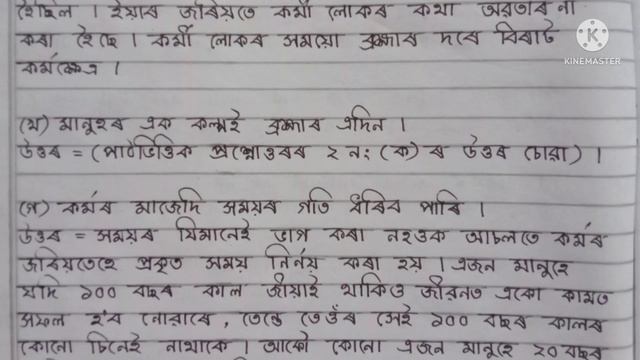 হৈছিল । ইয়াৰ জৰিয়তে কৰ্মী লোকৰ কথা অৱতাৰনা
কৰা হৈছে । কৰ্মী লোকৰ সময়ো ব্ৰহ্মাৰ দৰে বিৰাট
কৰ্মক্ষেত্ৰ ।
KINEMASTER
(খ) মানুহৰ এক কল্পই ব্ৰহ্মাৰ এদিন ।
উত্তৰ = (পাঠভিত্তিক প্ৰশ্নোত্তৰৰ ২ নং (ক) ৰ উত্তৰ চোৱা) ।
(গ) কৰ্মৰ মাজেদি সময়ৰ গতি ধৰিব পাৰি ।
উত্তৰ = সময়ৰ যিমানেই ভাগ কৰা নহওক আচলতে কৰ্মৰ
জৰিয়তেহে প্ৰকৃত সময় নিৰ্নয় কৰা হয় । এজন মানুহে
যদি ১০০ বছৰ কাল জীয়াই থাকিও জীৱনত একো কামত
সফল হ'ব নোৱাৰে , তেন্তে তেওঁৰ সেই ১০০ বছৰ কালৰ
কোনো চিনেই নাথাকে । আকৌ কোনো এজন মানুহে ২০ বছৰ